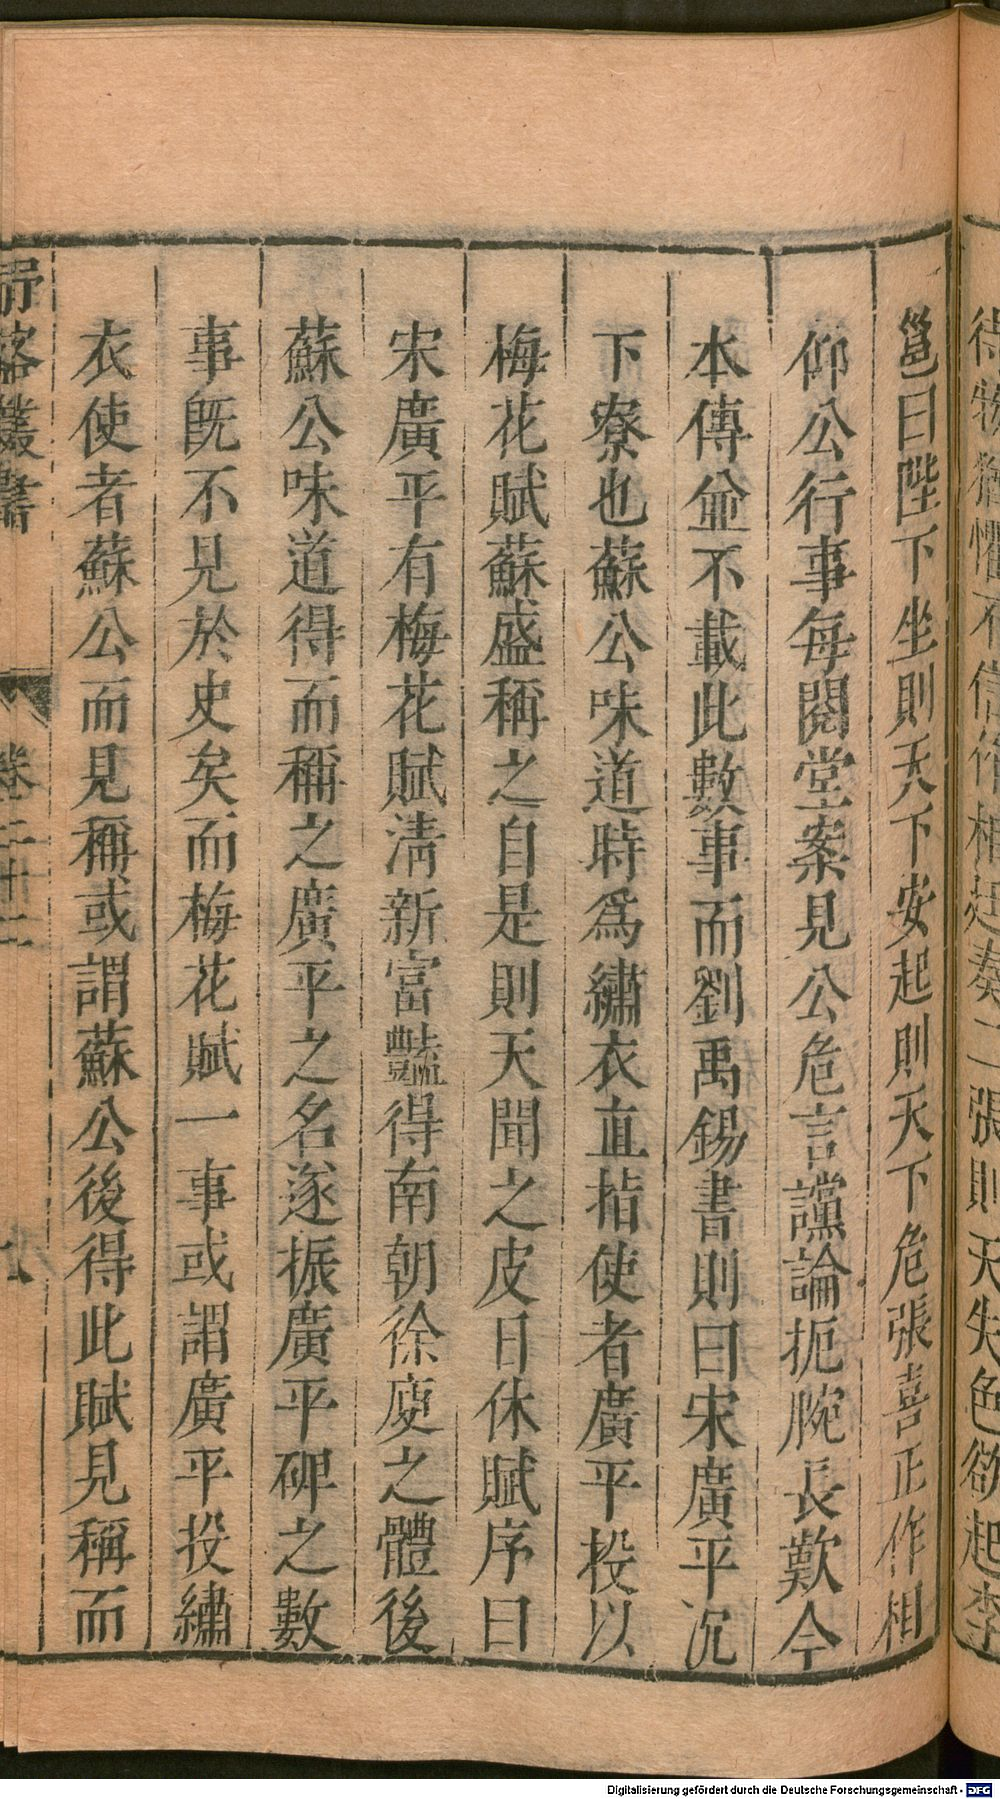 待物猶懼不信作相廷奏二張則天失色欲起李
邕曰陛下坐則天下安起則天下危張喜正作相
仰公行事每閱堂案見公危言讜論扼腕長歎今
本傳並不載此數事而劉禹錫書則曰宋廣平沉
下寮也蘇公味道時爲繡衣直指使者廣平投以
梅花賦蘇盛稱之自是則天聞之皮日休賦序曰
宋廣平有梅花賦淸新富豔得南朝徐庾之體後
蘇公味道得而稱之廣平之名遂振廣平碑之數
事旣不見於史矣而梅花賦一事或謂廣平投繡
衣使者蘇公而見稱或謂蘇公後得此賦見稱而
叢書
卷二十二
九
Digitalisierung gefördert durch die Deutsche Forschungsgemeinschaft - DFG